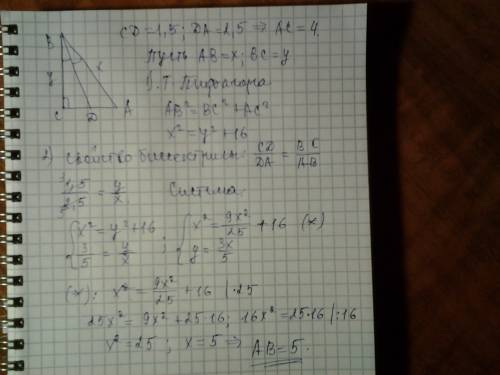 CD = 1,5; DA = 2,5 ⇒ AC = 4
Пусть AB = x; BC = y
1. Т. Пифагора
AB² = BC² + AC²
x² = y² + 16
B
y
x
C
D
A
2) Свойство биссектрисы: CD/DA = BC/AB
1,5/2,5 = y/x
Система
{ x² = y² + 16 ; { x² = 9x²/25 + 16 (*)
{ 3/5 = y/x { y = 3x/5
(*): x² = 9x²/25 + 16 | · 25
25x² = 9x² + 25·16; 16x² = 25·16 | :16
x² = 25 ; x = 5 ⇒ AB = 5.